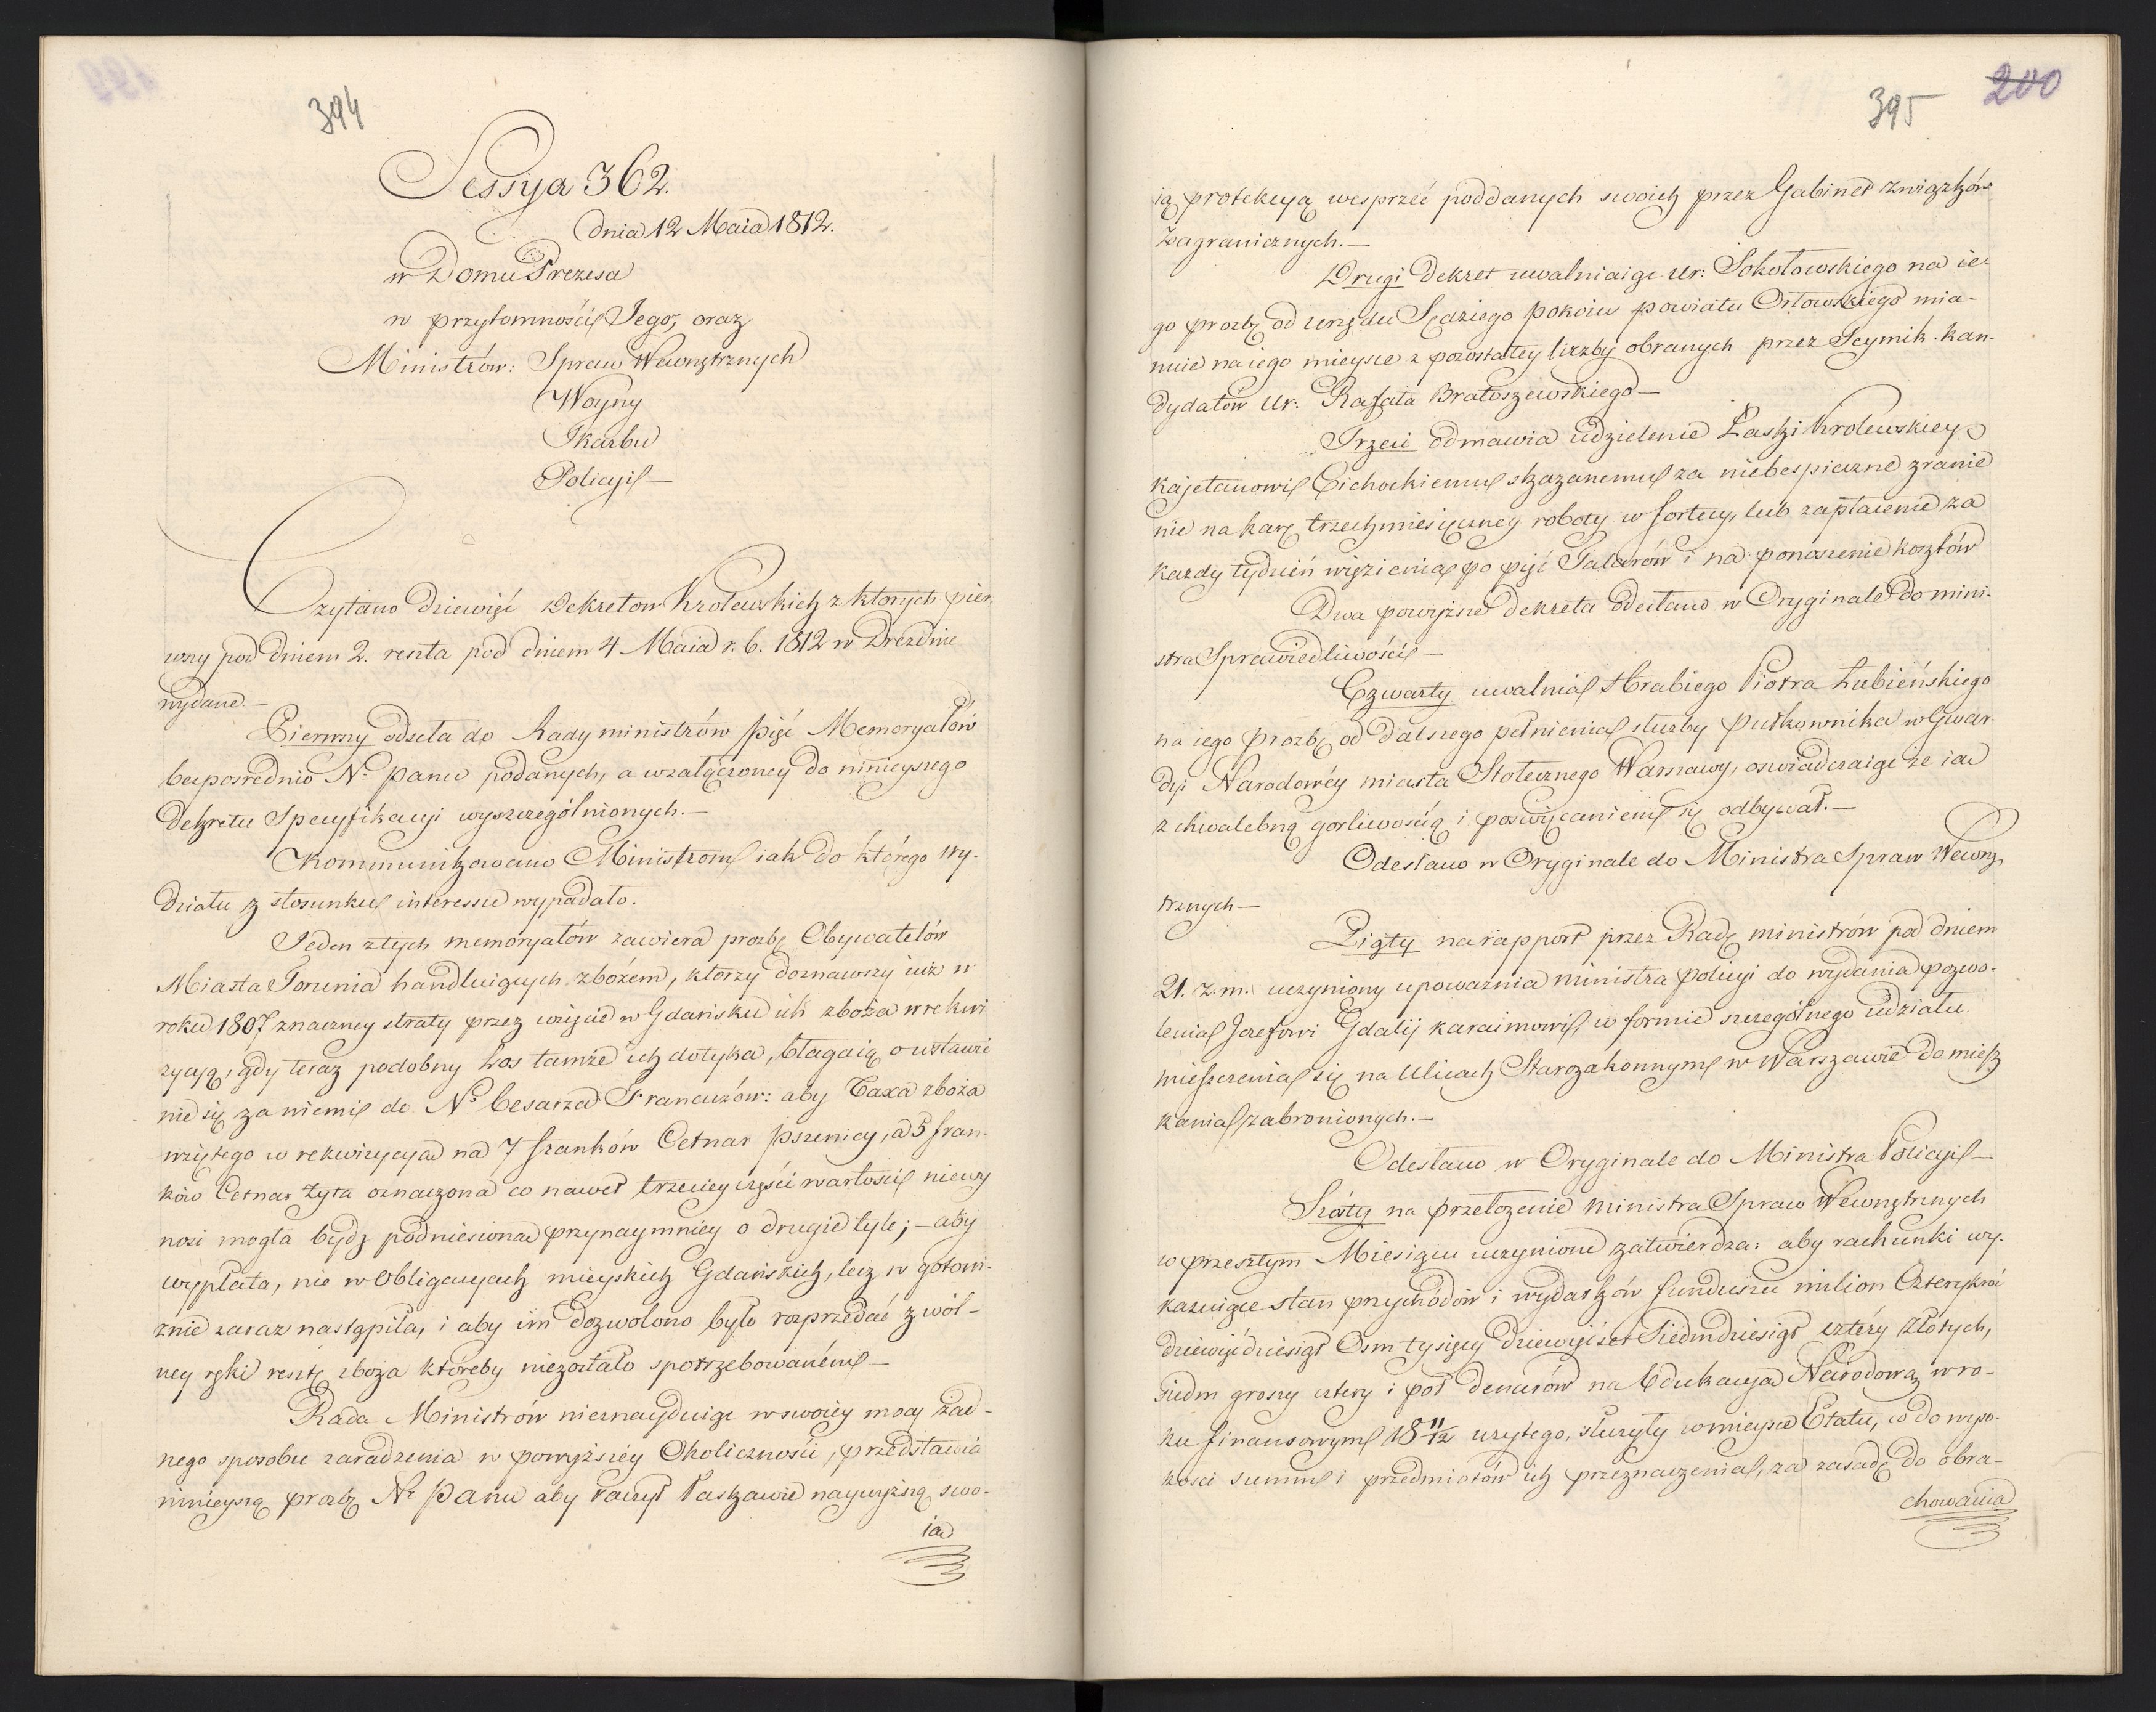 394
Sessya 362.
dnia 12 Maia 1812.
w Domu Prezesa
w przytomności Jego, oraz
Ministrów: Spraw Wewnętrznych
Woyny
Skarbu
Policyi —
Czytano dziewięć Dekretow Krolewskich z ktorych pier-
wszy pod dniem 2. reszta pod dniem 4 Maia r. b. 1812 w Dreznie
wydane —
Pierwszy odseła do Rady ministrów pięć Memoryałów
bezpośrednio N: panu podanych, a w załączoney do ninieyszego
Dekretu Specyfikacyi wyszczególnionych. —
Kommunikowano Ministrom iak do którego wy-
działu z stosunku interessu wypadało.
Jeden z tych memoryałów zawiera prozbę Obywatelów
Miasta Torunia handluiących zbożem, ktorzy doznawszy iuż w
roku 1807 znaczney straty przez wzięcie w Gdańsku ich zboża w rekwi
zycyą, gdy teraz podobny los tamże ich dotyka, błagaią o wstawie
nie się za niemi do No Cesarza Francuzów: aby Taxa zboża
wziętego w rekwizycya na 7 franków Cetnar pszenicy, a 5 fran-
ków Cetnar żyta oznaczona co nawet trzeciey części wartości niewy
nosi mogła bydź podniesiona przynaymniey o drugie tyle; — aby
wypłata, nie w Obligacyach mieyskich Gdańskich, lecz w gotowi-
znie zaraz nastąpiła, i aby im dozwolono było rozprzedać z wól-
ney ręki resztę zboża któreby niezostało spotrzebowaném —
Rada Ministrów nieznayduiąc w swoiéy mocy żad-
nego sposobu zaradzenia w powyższéy Okoliczności, przedstawia
ninieyszą prozbę No panu aby raczył łaskawie naywyższą swo-
ia
395
200
ią protekcyą wesprzeć poddanych swoich przez Gabinet związków
Zagranicznych. —
Drugi Dekret uwalniaiąc Ur: Sokołowskiego na ie-
go prozbę od urzędu Sędziego pokoiu powiatu Orłowskiego mia-
nuie na iego mieysce z pozostałey liczby obranych przez Seymik kan-
dydatów Ur: Rafała Bratoszewskiego —
Trzeci odmawia udzielenie Łaski Krolewskiey
Kajetanowi Cichockiemu skazanemu za niebespieczne zranie
nie na karę trzechmiesięczney roboty w fortecy, lub zapłacenie za
kazdy tydzień więzienia po pięć Talarów i na ponoszenie kosztów
Dwa powyższe Dekreta odesłano w Oryginale do mini-
stra Sprawiedliwości —
Czwarty uwalnia Hrabiego Piotra Łubieńskiego
na iego prozbę od dalszego pełnienia służby Pułkownika w Gwar-
dyi Narodowéy miasta Stołecznego Warszawy, oswiadczaiąc że ią
z chwalebną gorliwością i poswięcaniem się odbywał. —
Odesłano w Oryginale do Ministra Spraw Wewnę
trznych —
Piąty na rapport przez Radę ministrów pod dniem
21. z. m. uczyniony upoważnia ministra policyi do wydania pozwo-
lenia Jozefowi Gdalij karaimowi, w formie szczególnego udziału
mieszczenia się na Ulicach Starozakonnym w Warszawie do miesz
kania zabronionych. —
Odesłano w Oryginale do Ministra Policyi —
Szósty na przełożenie Ministra Spraw Wewnętrznych
w przeszłym Miesiącu uczynione zatwierdza: aby rachunki wy-
kazuiące stan przychodów i wydatków funduszu milion Czterykroć
dziewięćdziesiąt Osm tysięcy dziewięćset Siedmdziesiąt cztéry Złotych,
siedm groszy cztery i pół denarów na Edukacya Narodową w ro-
ku finansowym 18 11/12 użytego, służyły w mieysce Etatu, co do wyso-
kosci summ i przedmiotów ich przeznaczenia, za zasadę do obra-
chowania